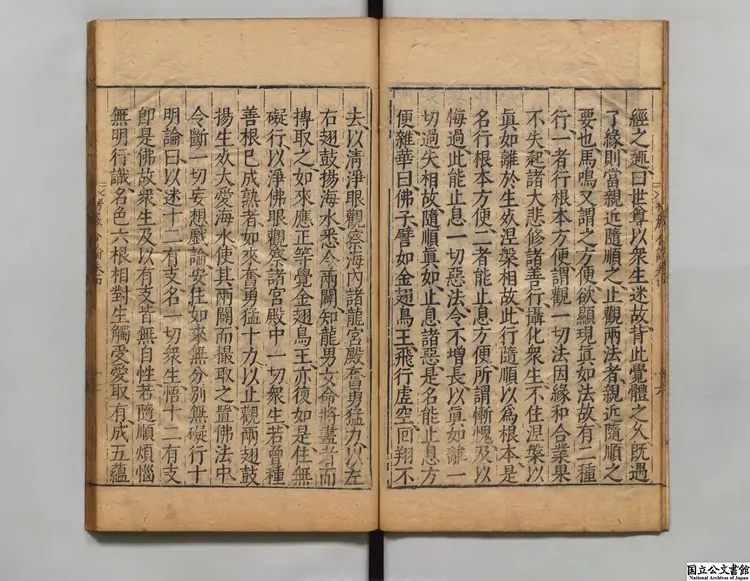 經之趣曰世尊以衆生迷故背此覺體之父既遇
了緣則當親近隨順之止觀兩法者親近隨順之
要也馬鳴又謂之方便欲顯現眞如法故有二種
行一者行根本方便謂觀一切法因緣和合業果
不失起諸大悲修諸善行攝化衆生不住涅槃以
眞如離於生死涅槃相故此行隨順以爲根本是
名行根本方便二者能止息方便所謂慚愧及以
悔過此能止息一切惡法令不增長以眞如離一
切過失相故隨順眞如止息諸惡是名能止息方
便雜華曰佛子譬如金翅鳥王飛行虛空回翔不
去以清淨眼觀察海內諸龍宮殿奮勇猛力以左
右翅鼓揚海水悉令兩闢知龍男女命將盡者而
搏取之如來應正等覺金翅鳥王亦復如是住無
礙行以淨佛眼觀察諸宮殿中一切衆生若曾種
善根已成熟者如來奮勇猛十力以止觀兩翅鼓
揚生死大愛海水使其兩闢而撮取之置佛法中
令斷一切妄想戲論安住如來無分別無礙行十
明論曰以迷十二有支名一切衆生悟十二有支
卽是佛故衆生及以有支皆無自性若隨順煩惱
無明行識名色六根相對生觸受愛取有成五蘊
国立公文書館
National Archives of Japan